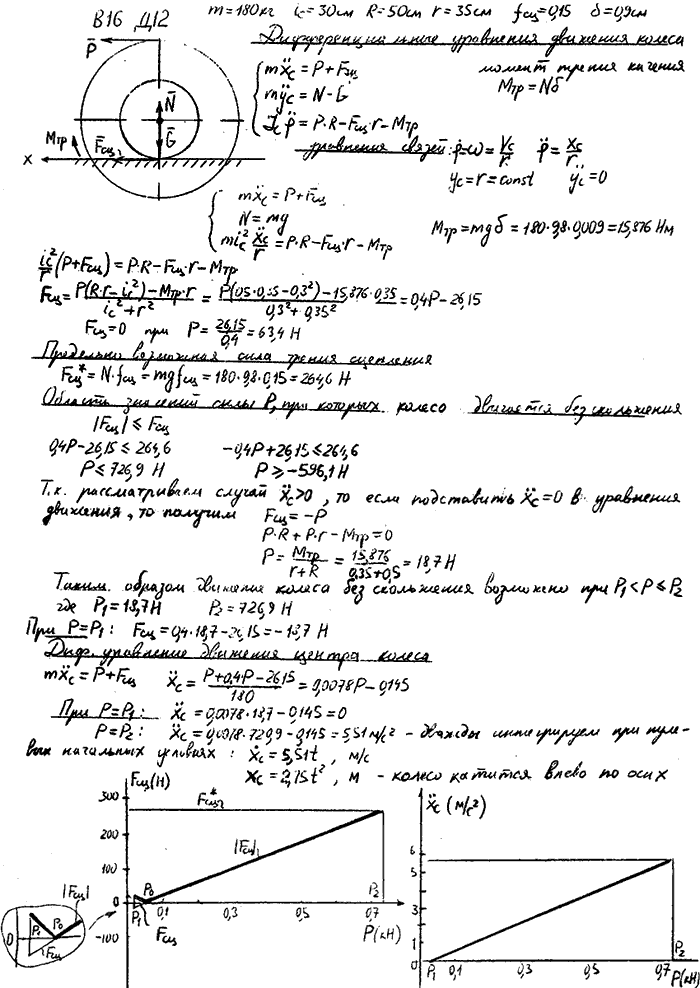 В16 Д12
m=180кг ic=30см R=50см r=35см fсц=0,15 δ=0,9см
Дифференциальные уравнения движения колеса
mẍc = P + Fсц
mÿc = N - G
Jcφ̈ = P·R - Fсц·r - Mтр
момент трения качения
Mтр = Nδ
уравнения связей: φ̇=ω=Vc/r φ̈=ẍc/r
yc = r = const ÿc = 0
P̄
N̄
Ḡ
Mтр
F̄сц
x
mẍc = P + Fсц
N = mg
mic² ẍc/r = P·R - Fсц·r - Mтр
Mтр = mgδ = 180·9,8·0,009 = 15,876 Нм
ic²/r (P+Fсц) = P·R - Fсц·r - Mтр
Fсц = P(R·r - ic²) - Mтр·r / ic² + r² = P(0,5·0,35 - 0,3²) - 15,876·0,35 / 0,3² + 0,35² = 0,4P - 26,15
Fсц=0 при P = 26,15/0,4 = 63,4 Н
Предельно возможная сила трения сцепления
Fсц* = N·fсц = mgfсц = 180·9,8·0,15 = 264,6 Н
Область значений силы P, при которых колесо двигается без скольжения
|Fсц| ≤ Fсц
0,4P - 26,15 ≤ 264,6 -0,4P + 26,15 ≤ 264,6
P ≤ 726,9 Н P ≥ -596,1 Н
Т.к. рассматриваем случай ẍc>0, то если подставить ẍc=0 в уравнения
движения, то получим Fсц = -P
P·R + P·r - Mтр = 0
P = Mтр / r+R = 15,876 / 0,35+0,5 = 18,7 Н
Таким образом движение колеса без скольжения возможно при P₁ < P ≤ P₂
где P₁ = 18,7 Н P₂ = 726,9 Н
При P=P₁: Fсц = 0,4·18,7 - 26,15 = -18,7 Н
Диф. уравнение движения центра колеса
mẍc = P + Fсц ẍc = P+0,4P-26,15 / 180 = 0,0078P - 0,145
При P=P₁: ẍc = 0,0078·18,7 - 0,145 = 0
P=P₂: ẍc = 0,0078·726,9 - 0,145 = 5,51 м/с² - дважды интегрируем при нуле-
вых начальных условиях: ẋc = 5,51t, м/с
xc = 2,75t², м - колесо катится влево по оси x
Fсц(Н)
300
200
100
0
-100
Fсц*
|Fсц|
P₀
P₁
Fсц
0,1
0,3
0,5
0,7
P₂
P(кН)
|Fсц|
0
P₁
P₀
Fсц
ẍc (м/с²)
6
5
3
1
0
P₁
0,1
0,3
0,5
0,7
P₂
P(кН)